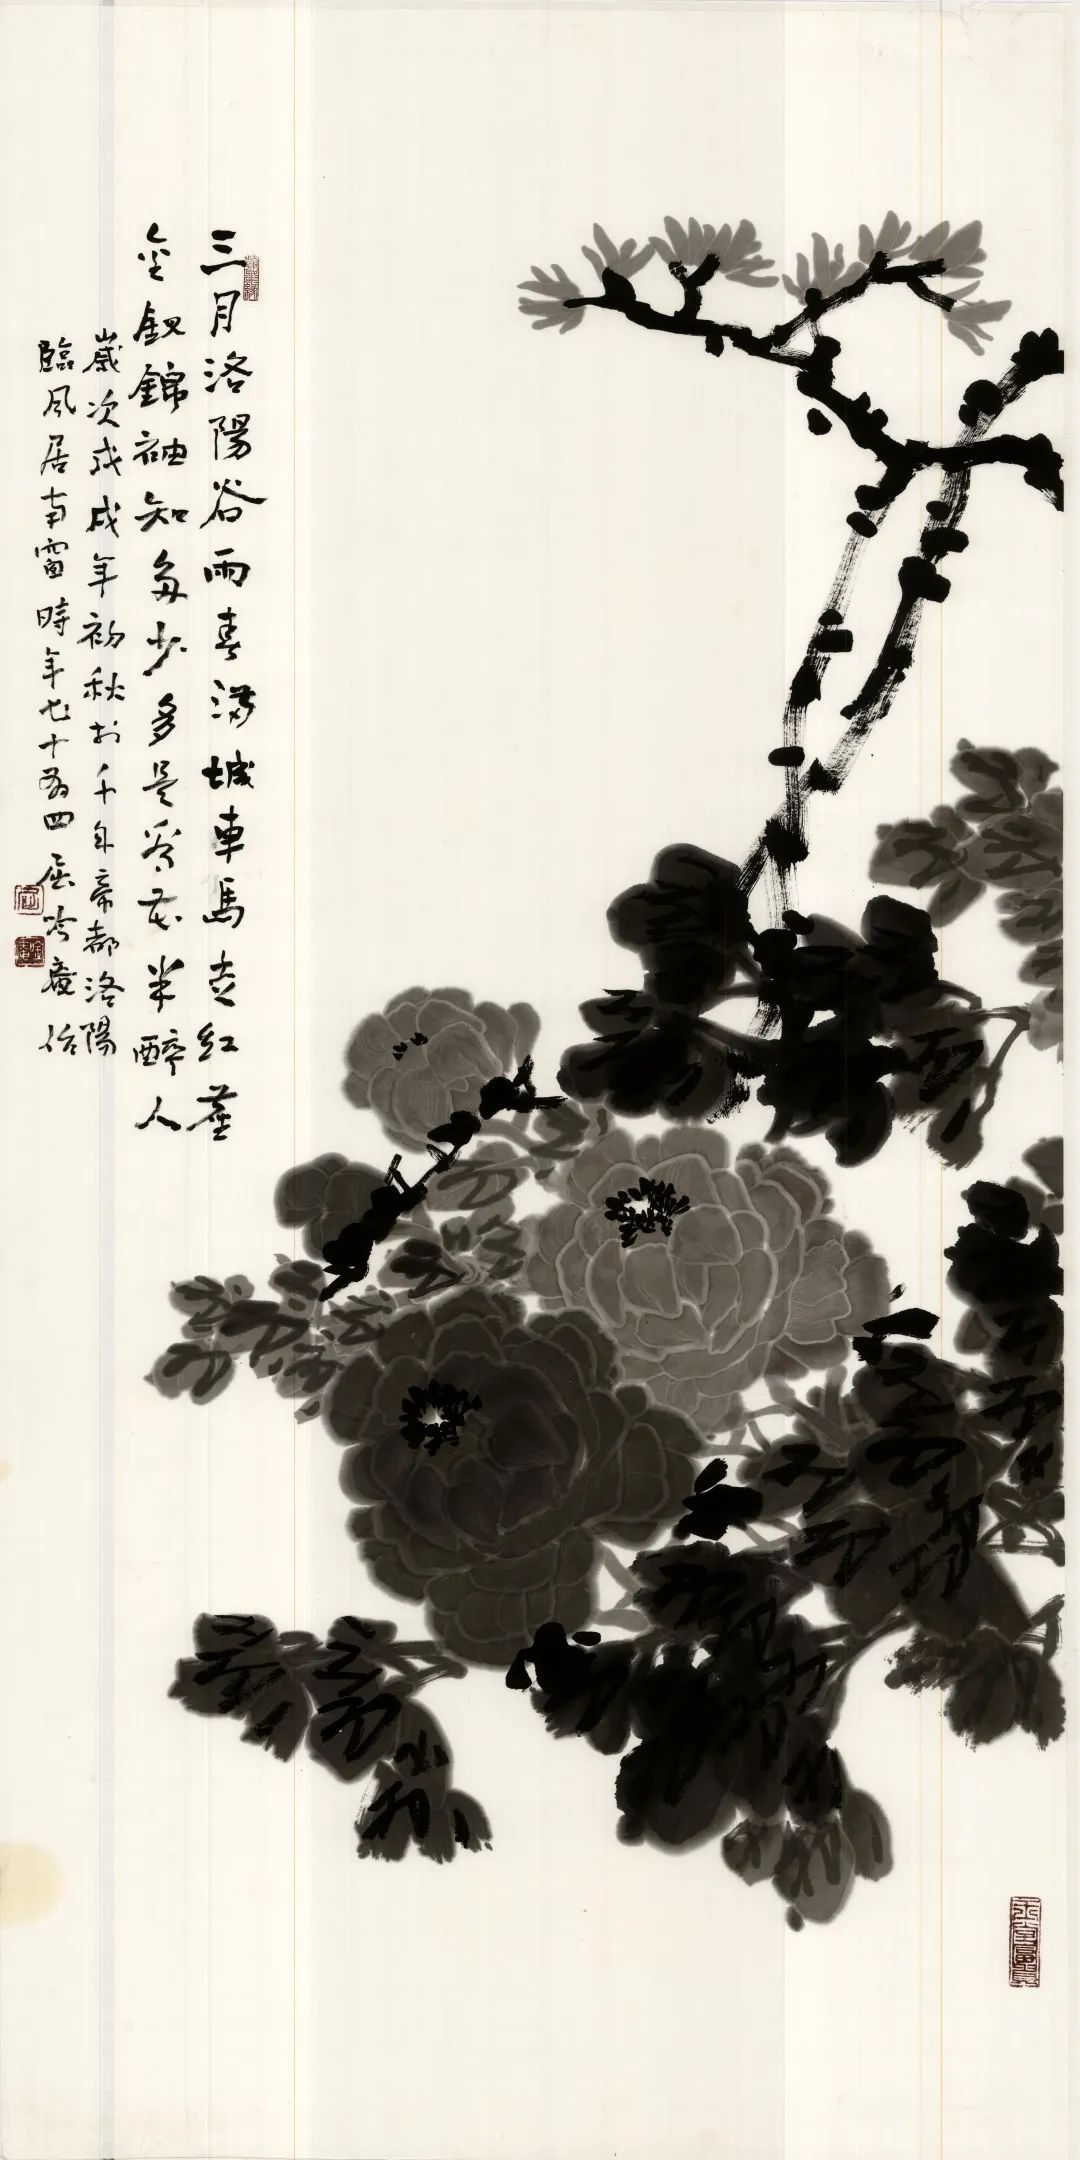 三月洛陽谷雨春滿城車馬走紅塵
金釵錦袖知多少多是看花半醉人
歲次戊戌年初秋於千年帝都洛陽
臨風居南窗時年七十有四